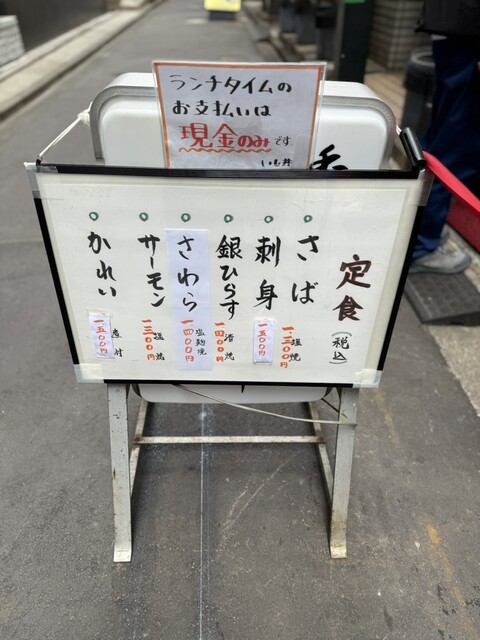 ランチタイムの
お支払いは
現金のみです
いも井
定食(税込)
さば 塩焼 一、三〇〇円
刺身 一五〇〇円
銀ひらす 酒焼 一四〇〇円
さわら 塩麹焼 一四〇〇円
サーモン 塩焼 一三〇〇円
かれい 煮付 一五〇〇円